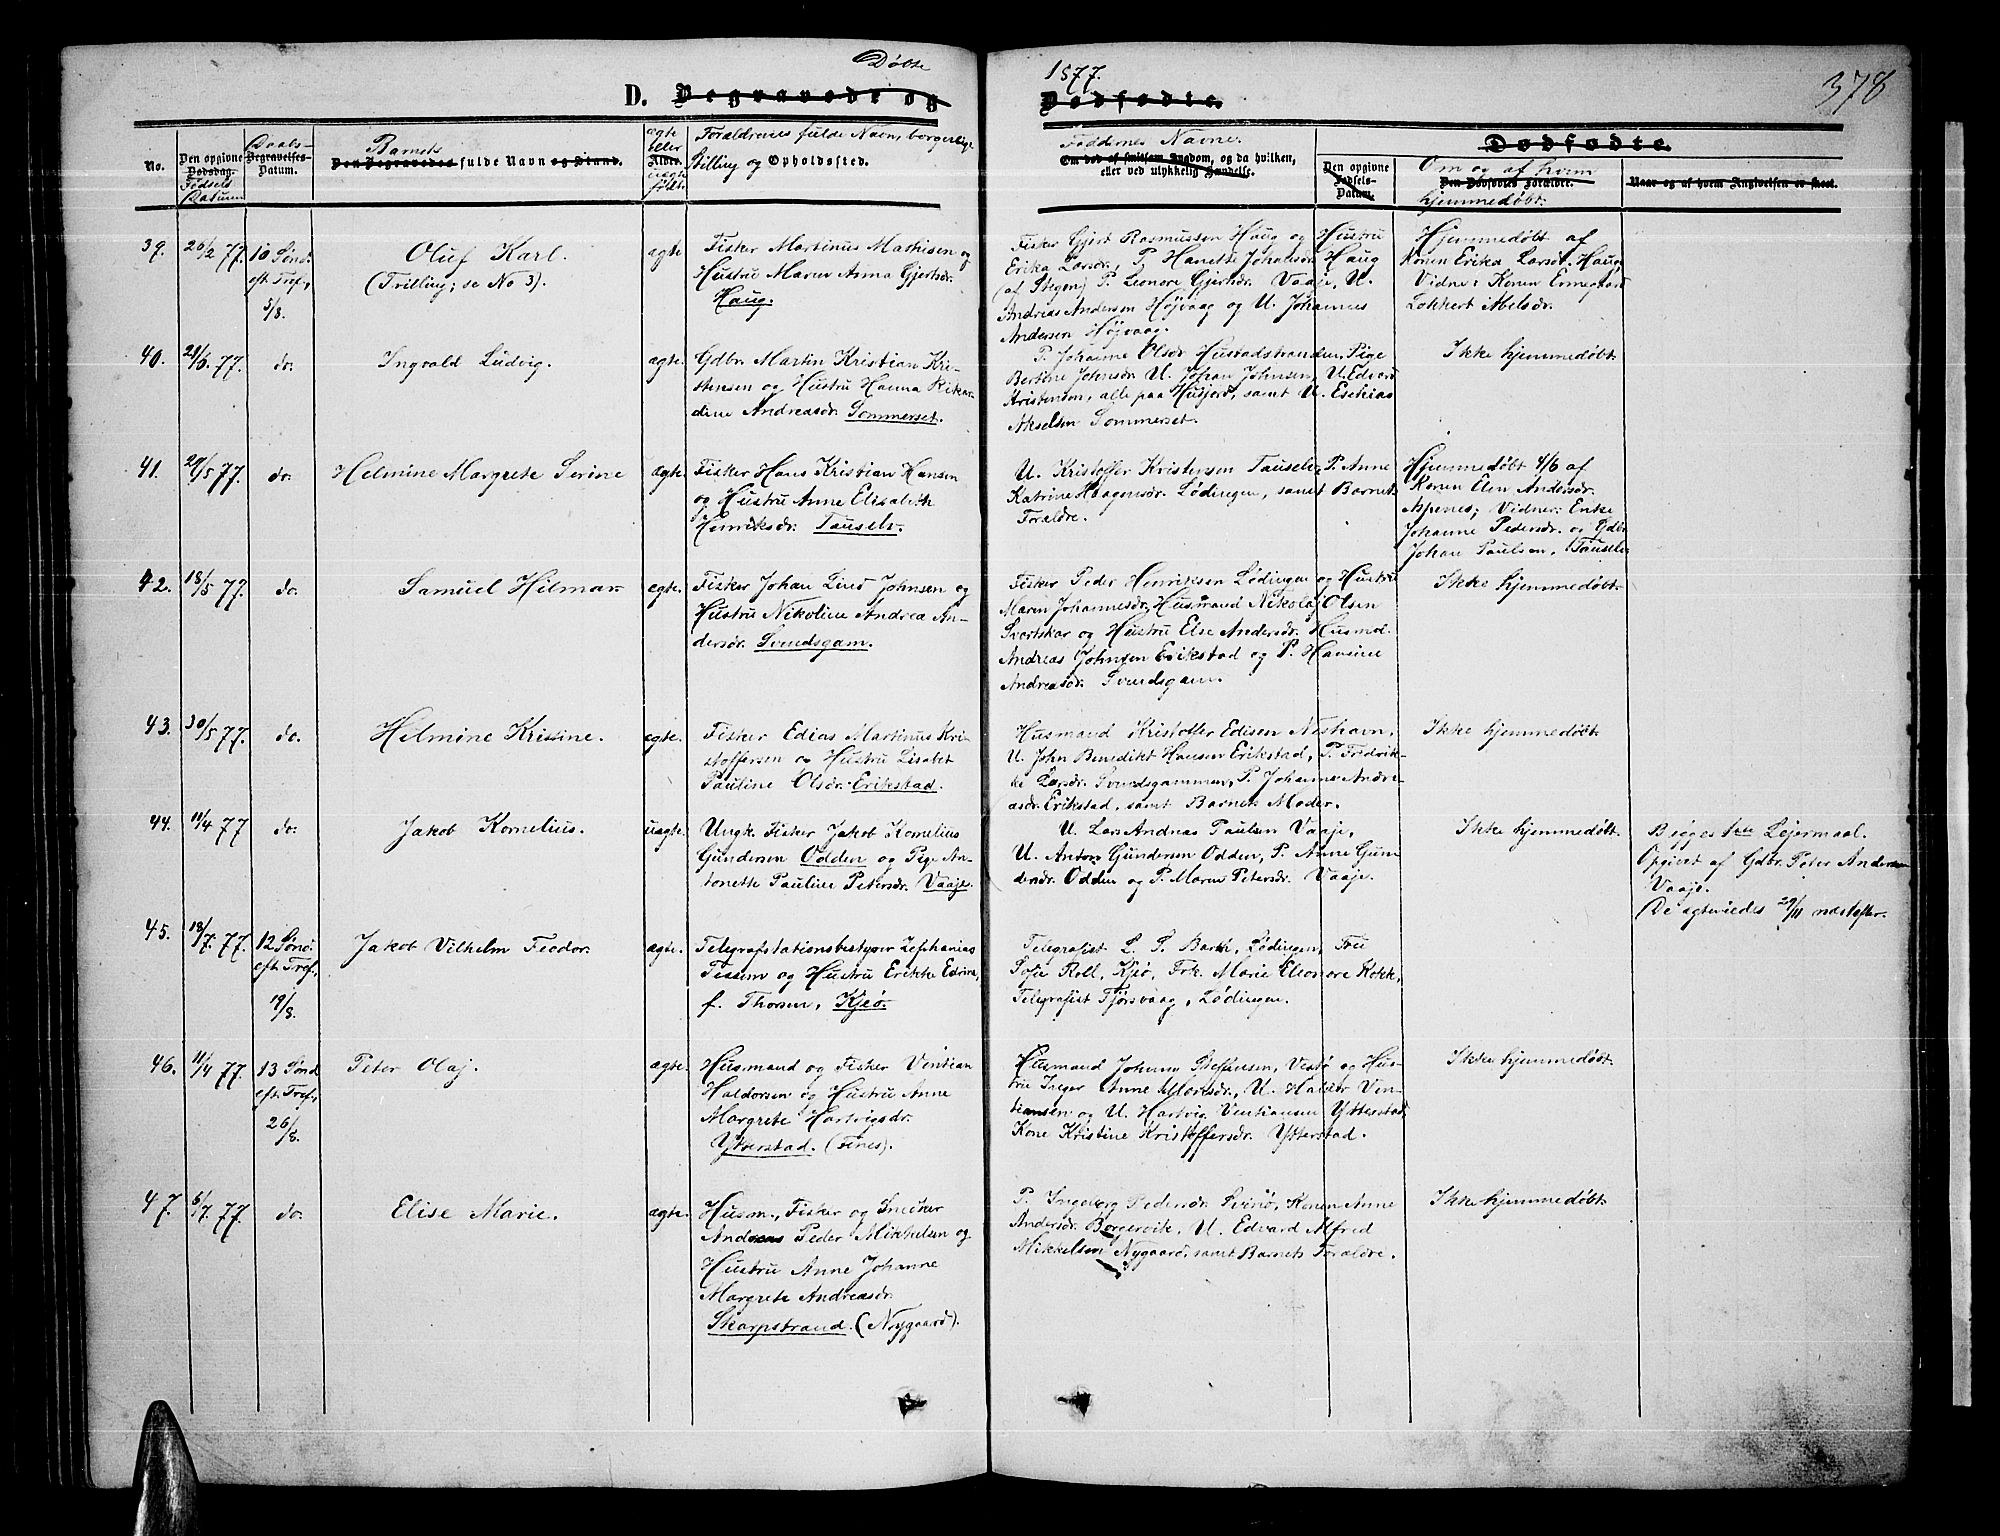 Døbte
1877.
378
D. Begravede og
Dødfødte.
No.
Den opgivne
Dødsdag.
Fødsels
Datum
Daabs-
Begravelses-
Datum.
Barnets
Den Begravedes fulde Navn og Stand.
ægte
eller
Alder.
uægte
født.
Forældrenes fulde Navn, borgerlige
Stilling og Opholdssted.
Faddernes Navne.
Om død af smitsom Sygdom, og da hvilken,
eller ved ulykkelig Hændelse.
Dødfødte.
Den opgivne
Fødsels-
Datum.
Om og af hvem
Den Dødfødtes Forældre.
hjemmedøbt.
Naar og af hvem Angivelsen er skeet.
39. 26/2 77. 10 Sønd.
eft. Tref.,
5/8.
Oluf Karl.
(Trilling; se No 3).
ægte
Fisker Martinus Mathisen og
Hustru Maren Anna Gjertsdr.
Haug.
Fisker Gjert Rasmussen Haug og Hustru
Erika Larsdr. P. Hanette Johansdr. Haug
(af Stegen) P. Leonore Gjertsdr. Vaaje, U.
Andreas Andersen Højvaag og U. Johannes
Andersen Højvaag.
Hjemmedøbt af
Konen Erika Larsdr. Haug,
Vidne: Konen Ermegaard
Lokkert Abelsdr.
40. 28/6 77. do.
Ingvald Ludvig.
ægte.
Gdbr. Martin Kristian Kri-
stensen og Hustru Hanna Rikar-
dine Andreasdr. Sommerset.
P. Johanne Olsdr. Hustadstranden, Pige
Berthine Johnsdr. U. Johan Johnsen, U. Edvard
Kristensen, alle paa Husjord, samt U. Esekias
Akselsen Sommerset.
Ikke hjemmedøbt.
41. 29/5 77. do.
Helmine Margrete Serine
ægte.
Fisker Hans Kristian Hansen
og Hustru Anne Elisabeth
Henriksdr. Tausels.
U. Kristoffer Kristensen Tausels, P. Anne
Katrine Haagensdr. Lødingen, samt Barnets
Forældre.
Hjemmedøbt 4/6 af
Konen Elen Andersdr.
Aspenes; Vidner: Enke
Johanne Pedersdr. og Gdbr.
Johan Paulsen, Tausels
42. 18/5 77. do.
Samuel Hilmar.
ægte.
Fisker Johan Lind Johnsen og
Hustru Nikoline Andrea An-
dersdr. Svendsgam.
Fisker Peder Henriksen Lødingen og Hustru
Maren Johannesdr. Husmand Nikolaj Olsen
Svartskar og Hustru Else Andersdr. Husmd.
Andreas Johnsen Erikstad og P. Hansine
Andreasdr. Svendsgam.
Ikke hjemmedøbt.
43. 30/5 77. do.
Helmine Kristine.
ægte.
Fisker Edias Martinus Kri-
stoffersen og Hustru Lisabet
Pauline Olsdr. Erikstad.
Husmand Kristoffer Edisen Neshavn,
U. John Benedikt Hansen Erikstad, P. Fredrik-
ke Larsdr. Svendsgammen, P. Johanne Andre-
asdr. Erikstad, samt Barnets Moder.
Ikke hjemmedøbt.
44. 11/4 77 do.
Jakob Kornelius.
uægte.
Ungk. Fisker Jakob Kornelius
Gundersen Odden og Pige An-
tonette Pauline Petersdr. Vaaje.
U. Lars Andreas Paulsen Vaaje,
U. Anton Gundersen Odden, P. Anne Gun-
dersdr. Odden og P. Maren Petersdr. Vaaje.
Ikke hjemmedøbt.
Begges 1ste Lejermaal.
Opgivet af Gdbr. Peter Andersen
Vaaje.
De ægteviedes 29/11 næstefter.
45. 18/7 77. 12 Sønd.
eft. Tref.,
19/8.
Jakob Vilhelm Feodor.
ægte.
Telegrafstationsbestyrer Zephanias
Tessem og Hustru Erikke Edrine,
f. Thorsen, Kjeø.
Telegrafist L. P. Barth, Lødingen, Fru
Sofie Roll, Kjeø, Frk. Marie Eleonore Kokk,
Telegrafist Tjørsvaag, Lødingen.
46. 11/4 77. 13 Sønd
eft. Tref.,
26/8.
Peter Olaj.
ægte.
Husmand og Fisker Ventian
Haldorsen og Hustru Anne
Margrete Hartvigsdr.
Ytterstad. (Fines).
Husmand Johannes Steffensen, Vestø og Hus-
tru Inger Anne Monsdr., U. Haldor Ven-
tiansen og U. Hartvig Ventiansen Ytterstad,
Kone Kristine Kristoffersdr. Ytterstad.
Ikke hjemmedøbt.
47. 6/7 77. do.
Elise Marie.
ægte.
Husm., Fisker og Smeder
Andreas Peder Mikkelsen og
Hustru Anne Johanne
Margrete Andreasdr.
Skarpstrand. (Nygaard).
P. Ingeborg Pedersdr. Svinø, Konen Anne
Andersdr. Borgervik, U. Edvard Alfred
Mikkelsen Nygaard, samt Barnets Forældre.
Ikke hjemmedøbt.